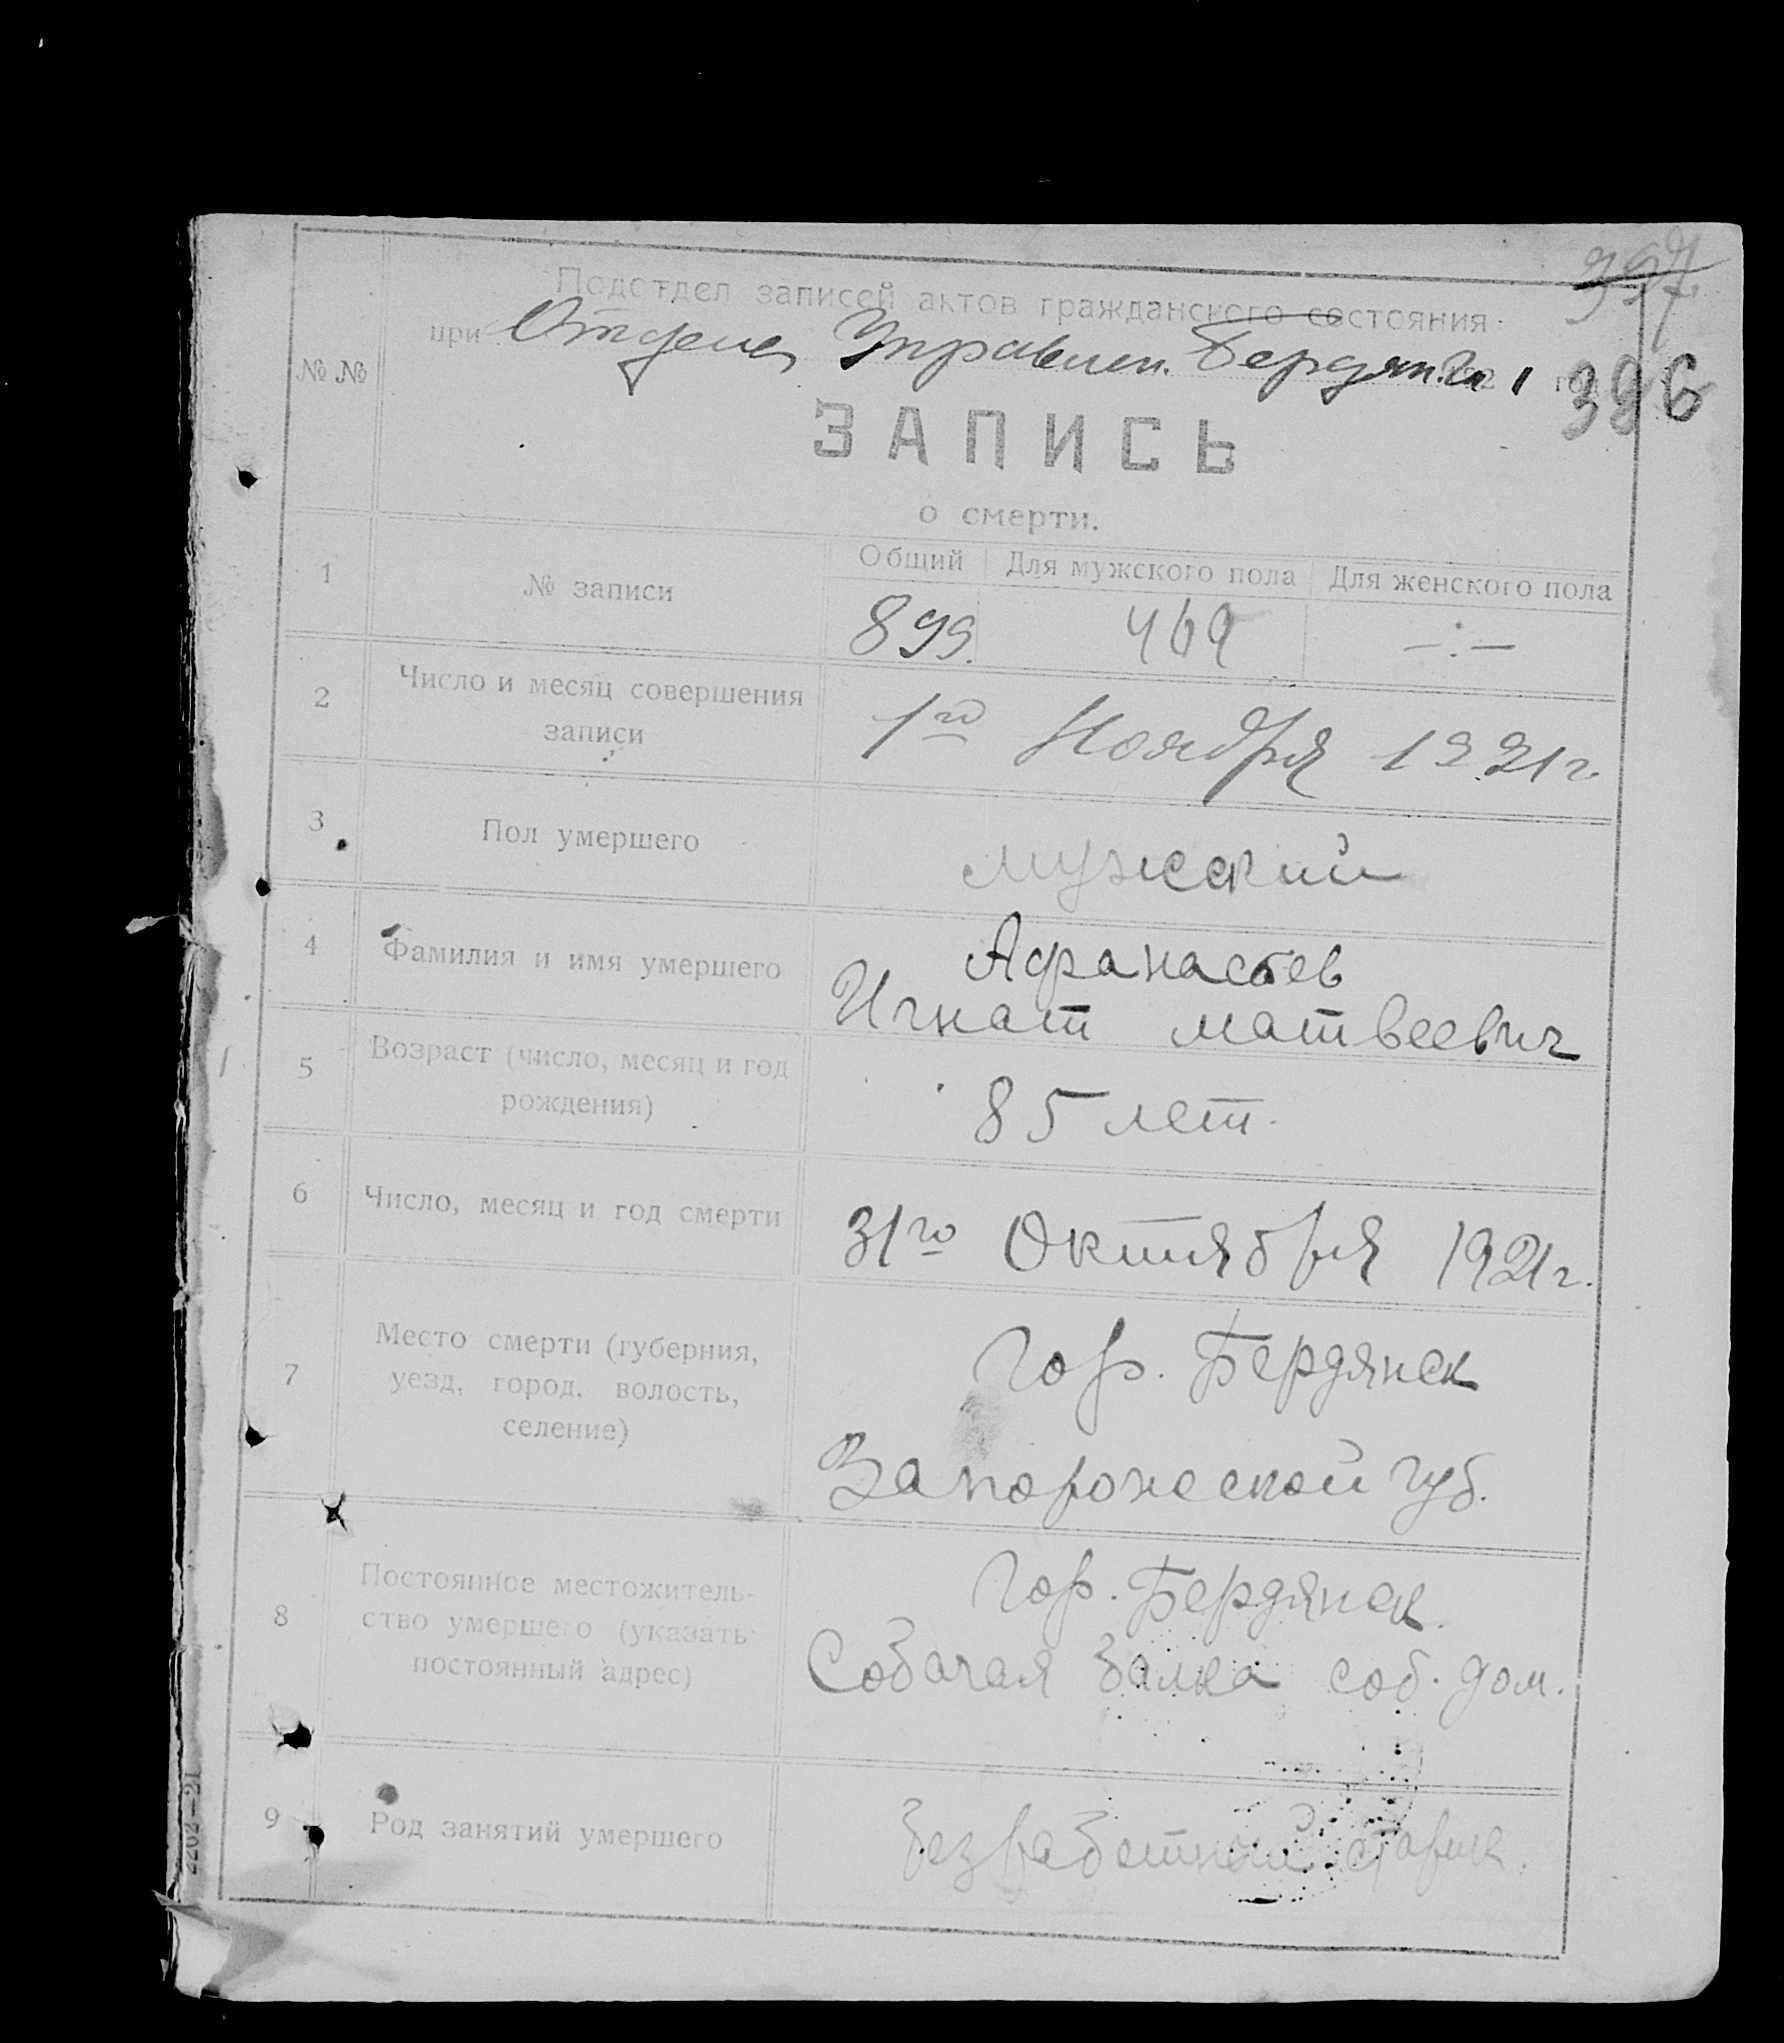 397
Подотдел записей актов гражданского состояния
при Отделе Управлен. Бердян. 1921 год
396
№№
ЗАПИСЬ
о смерти.
1
№ записи
Общий
Для мужского пола
Для женского пола
899.
469
—·—
2
Число и месяц совершения
записи
1го Ноября 1921 г.
3
Пол умершего
мужский
4
Фамилия и имя умершего
Афанасьев
Игнат Матвеевич
5
Возраст (число, месяц и год
рождения)
85 лет.
6
Число, месяц и год смерти
31го Октября 1921 г.
7
Место смерти (губерния,
уезд, город, волость,
селение)
Гор. Бердянск
Запорожской губ.
8
Постоянное местожитель-
ство умершего (указать
постоянный адрес)
Гор. Бердянск
Собачая балка соб. дом.
9
Род занятий умершего
безработный старик.
2202—21